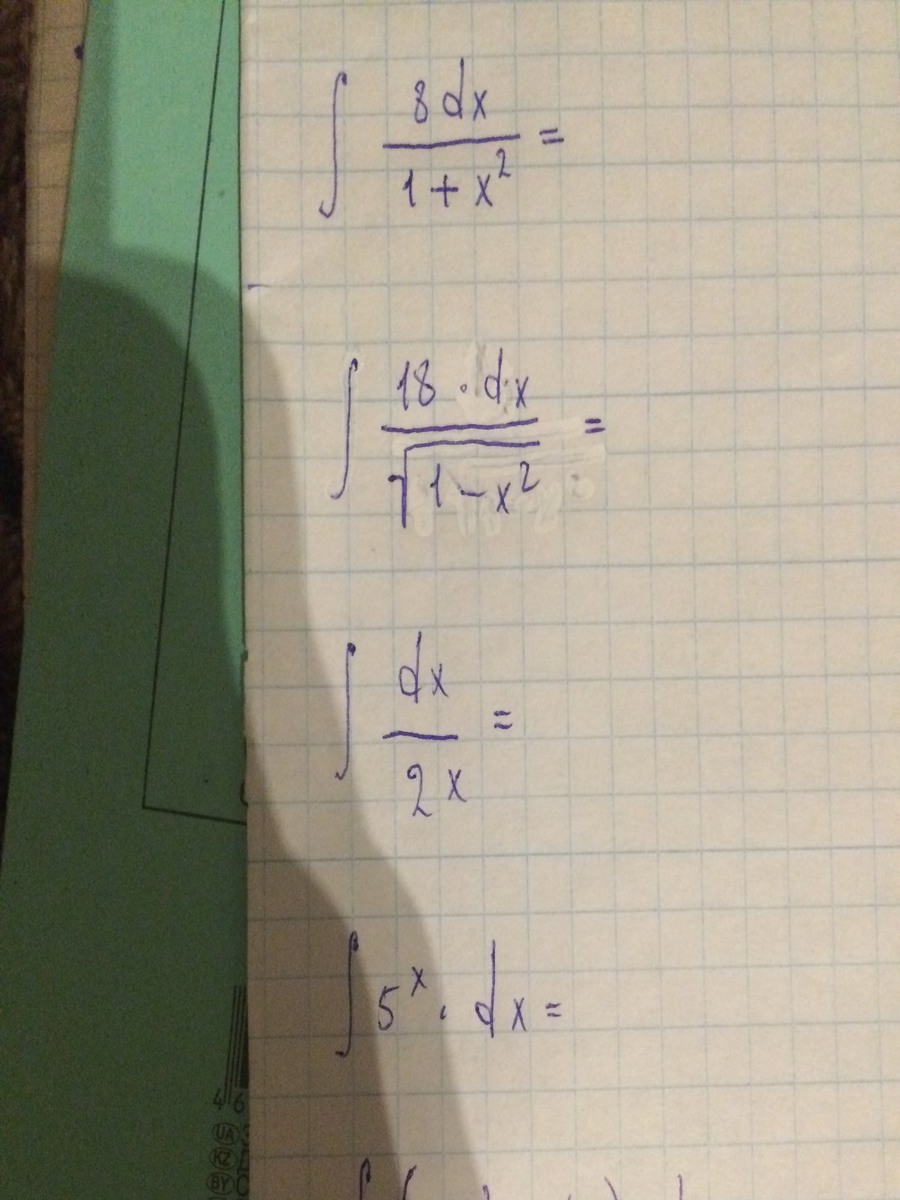 ∫ 8dx / 1 + x² =
∫ 18 · dx / √1 - x² =
∫ dx / 2x =
∫ 5ˣ · dx =
46
UA
KZ
BY